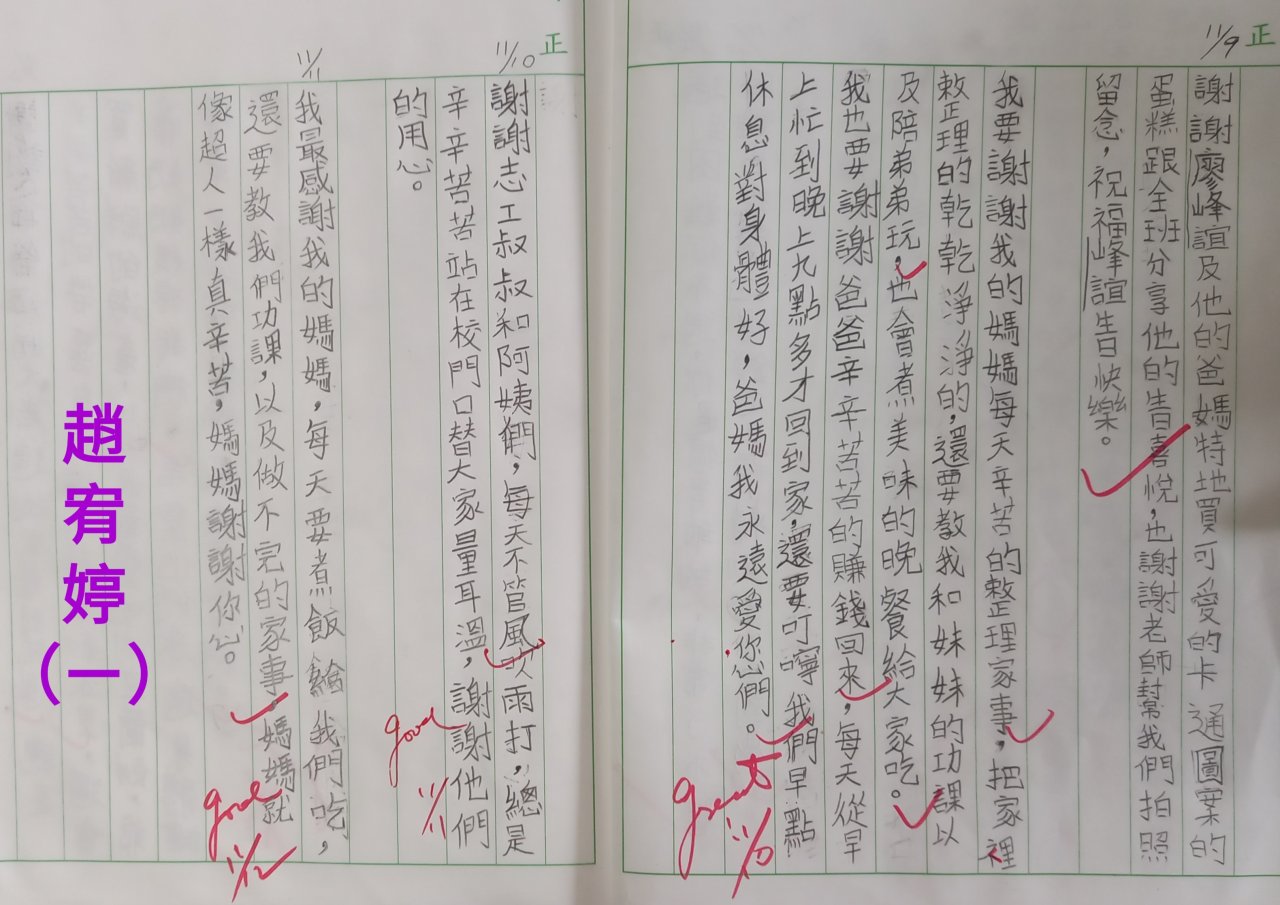 正
11/9
謝謝廖峰誼及他的爸媽特地買可愛的卡通圖案的
蛋糕跟全班分享他的告喜悅，也謝謝老師幫我們拍照
留念，祝福峰誼告快樂。
我要謝謝我的媽媽每天辛苦的整理家事，把家裡
整理的乾乾淨淨的，還要教我和妹妹的功課以
及陪弟弟玩，也會煮美味的晚餐給大家吃。
我也要謝謝爸爸辛辛苦苦的賺錢回來，每天從早
上忙到晚上九點多才回到家，還要叮嚀我們早點
休息對身體好，爸媽我永遠愛你們。
great
11/10
正
11/10
謝謝志工叔叔和阿姨們，每天不管風吹雨打，總是
辛辛苦苦站在校門口替大家量耳溫，謝謝他們
的用心。
good
11/11
11/11
我最感謝我的媽媽，每天要煮飯給我們吃，
還要教我們功課，以及做不完的家事。媽媽就
像超人一樣真辛苦，媽媽謝謝你。
good
11/12
趙宥婷
（一）